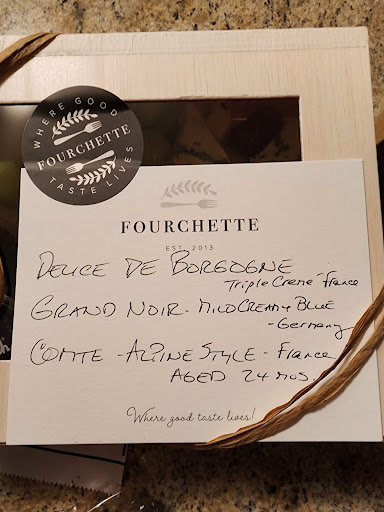 WHERE GOOD
FOURCHETTE
TASTE LIVES
FOURCHETTE
EST. 2013
DELICE DE BORGOGNE
Triple Creme - France
GRAND NOIR - MILD CREAMY BLUE
- Germany
COMTE - ALPINE STYLE - France
AGED 24 MOS.
Where good taste lives!